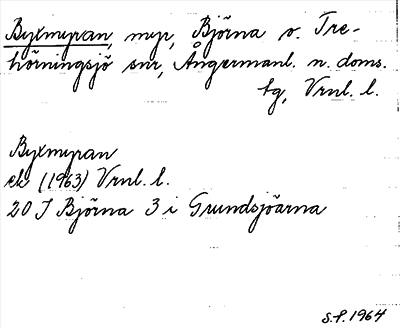 Byxmyran, myr, Björna o. Tre-
hörningsjö snr, Ångermanl. n. doms.
tg, Vrnl. l.
Byxmyran
ek (1963) Vrnl. l.
20 J Björna 3 i Grundsjöarna
S.F. 1964